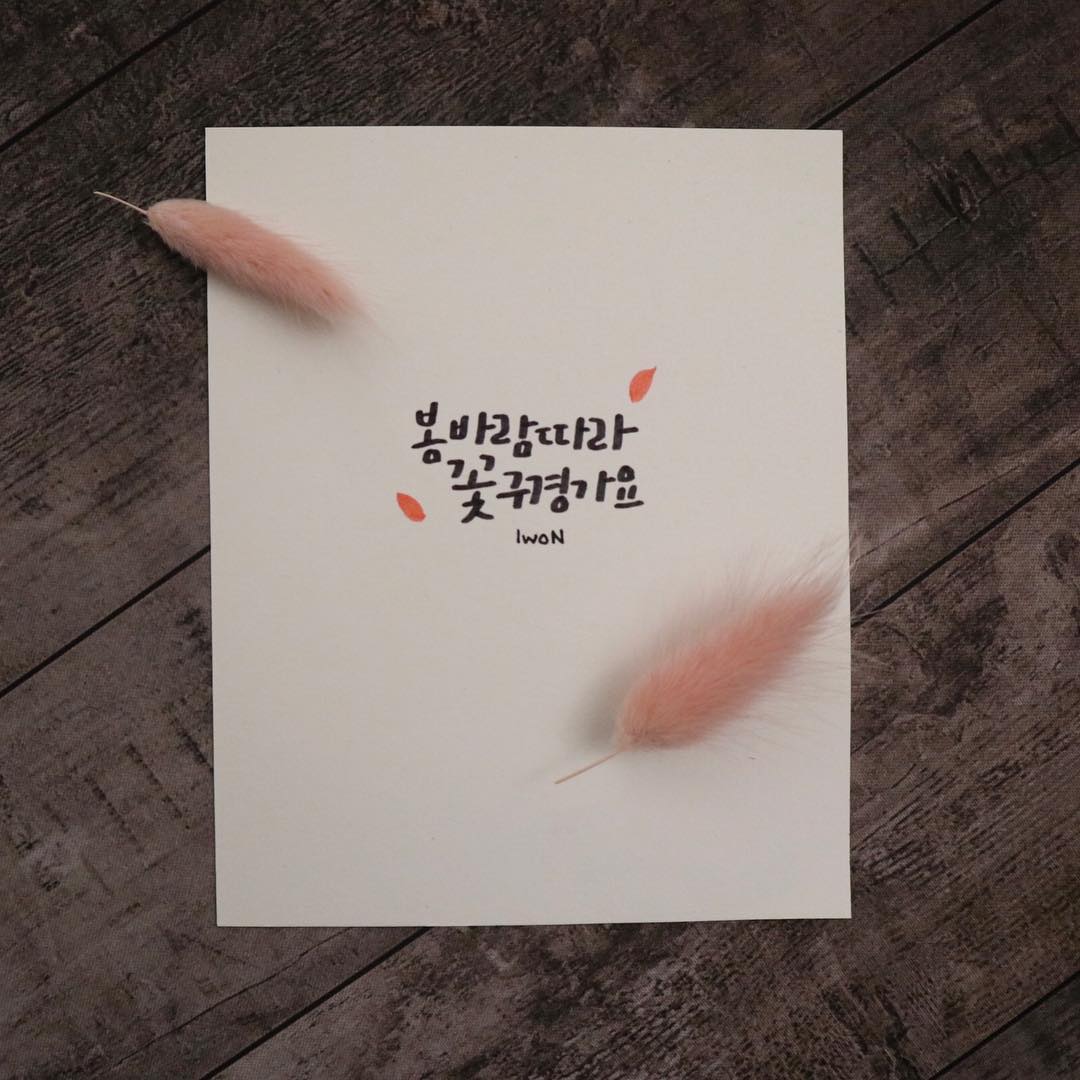 봄바람따라
꽃구경가요
IwoN